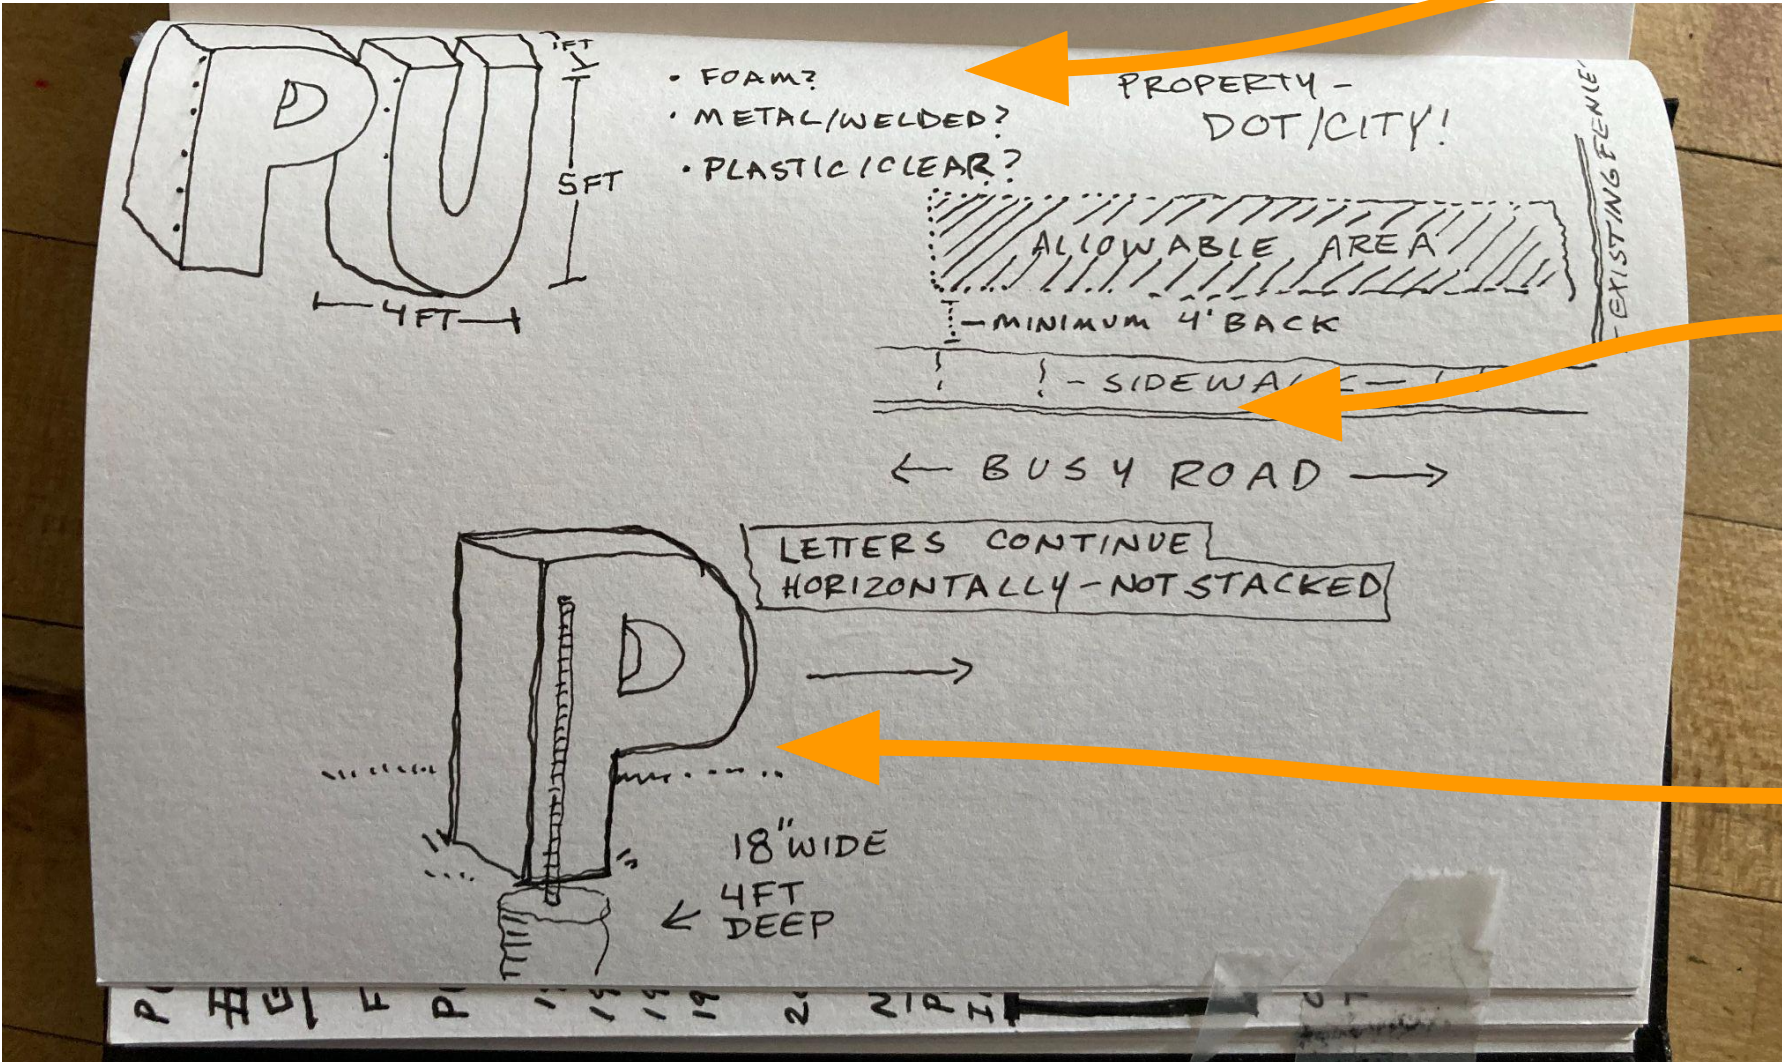 PU
1FT
5FT
4FT
• FOAM?
• METAL/WELDED?
• PLASTIC/CLEAR?
PROPERTY -
DOT/CITY!
ALLOWABLE AREA
- EXISTING FENCE
- MINIMUM 4' BACK
- SIDEWALK -
← BUSY ROAD →
LETTERS CONTINUE
HORIZONTALLY - NOT STACKED
P
18" WIDE
4FT
DEEP